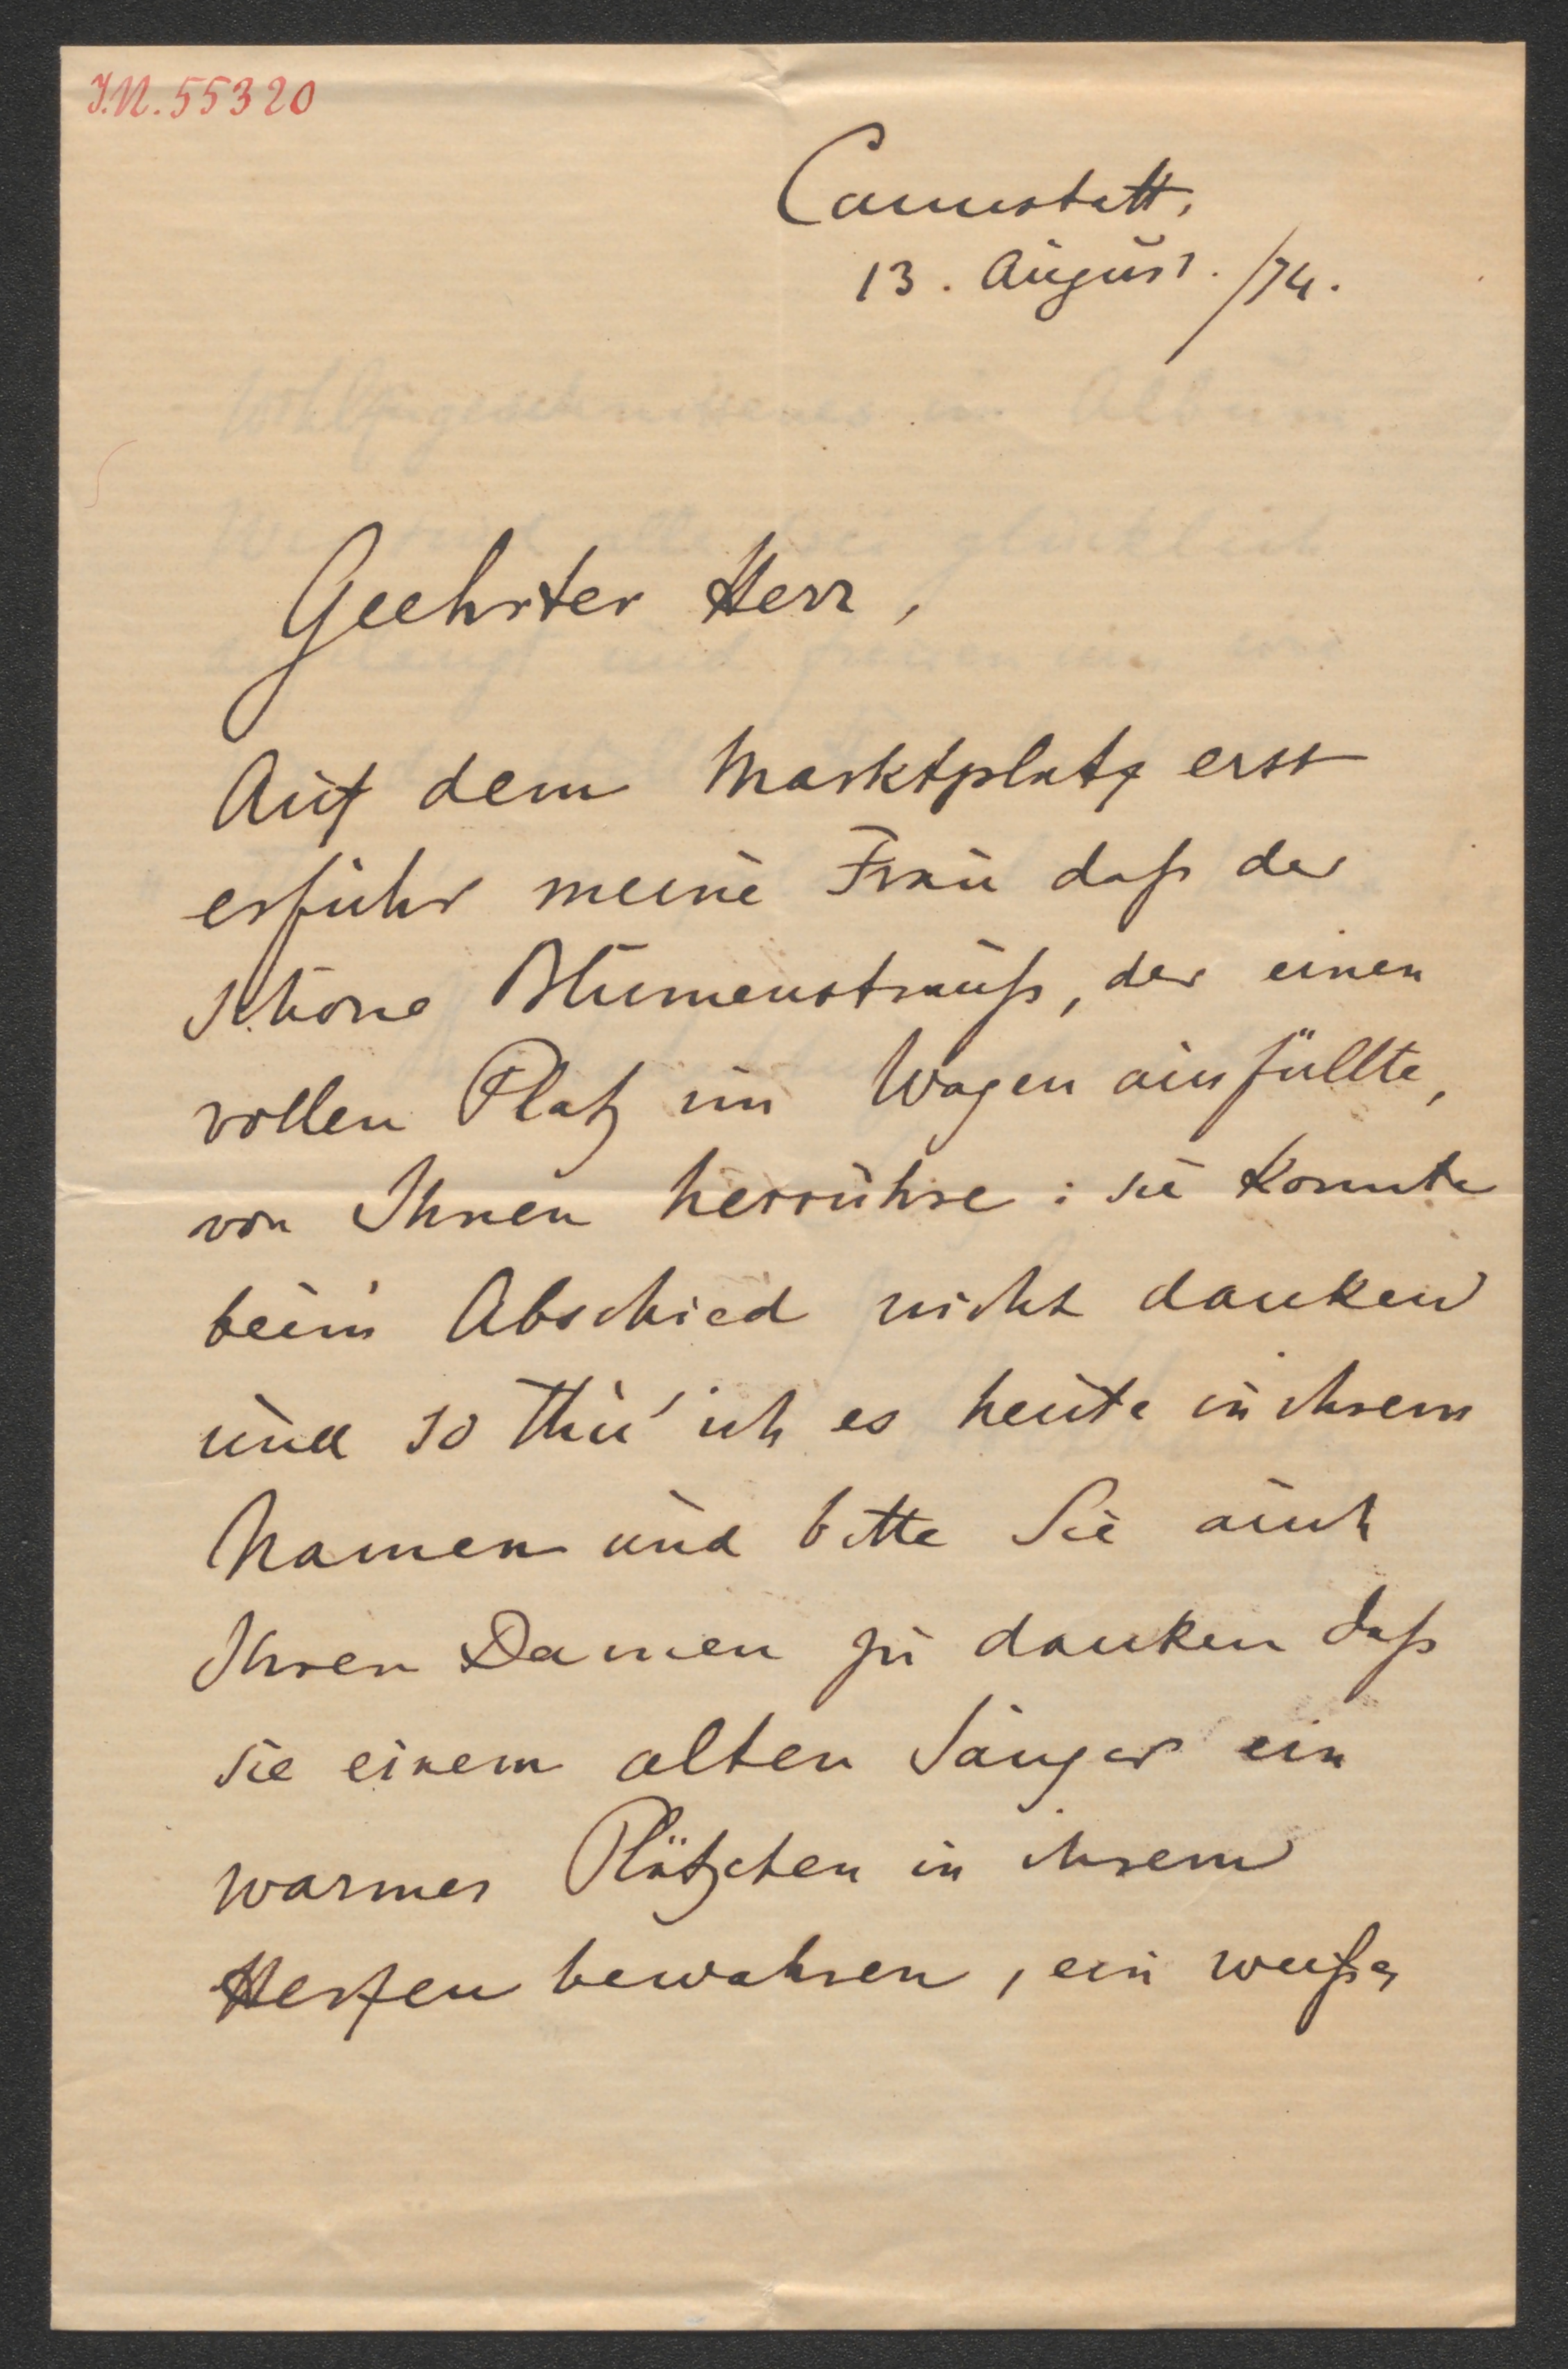 I.N. 55320
Cannstatt,
13. August. /74.
Geehrter Herr,
Auf dem Marktplatz erst
erfuhr meine Frau daß der
schöne Blumenstrauß, der einen
vollen Platz im Wagen ausfüllte,
von Ihnen herrühre: sie konnte
beim Abschied nicht danken
und so thu' ich es heute in ihrem
Namen und bitte Sie auch
Ihren Damen zu danken daß
sie einem alten Sänger ein
warmes Plätzchen in ihrem
Herzen bewahren, ein weißes